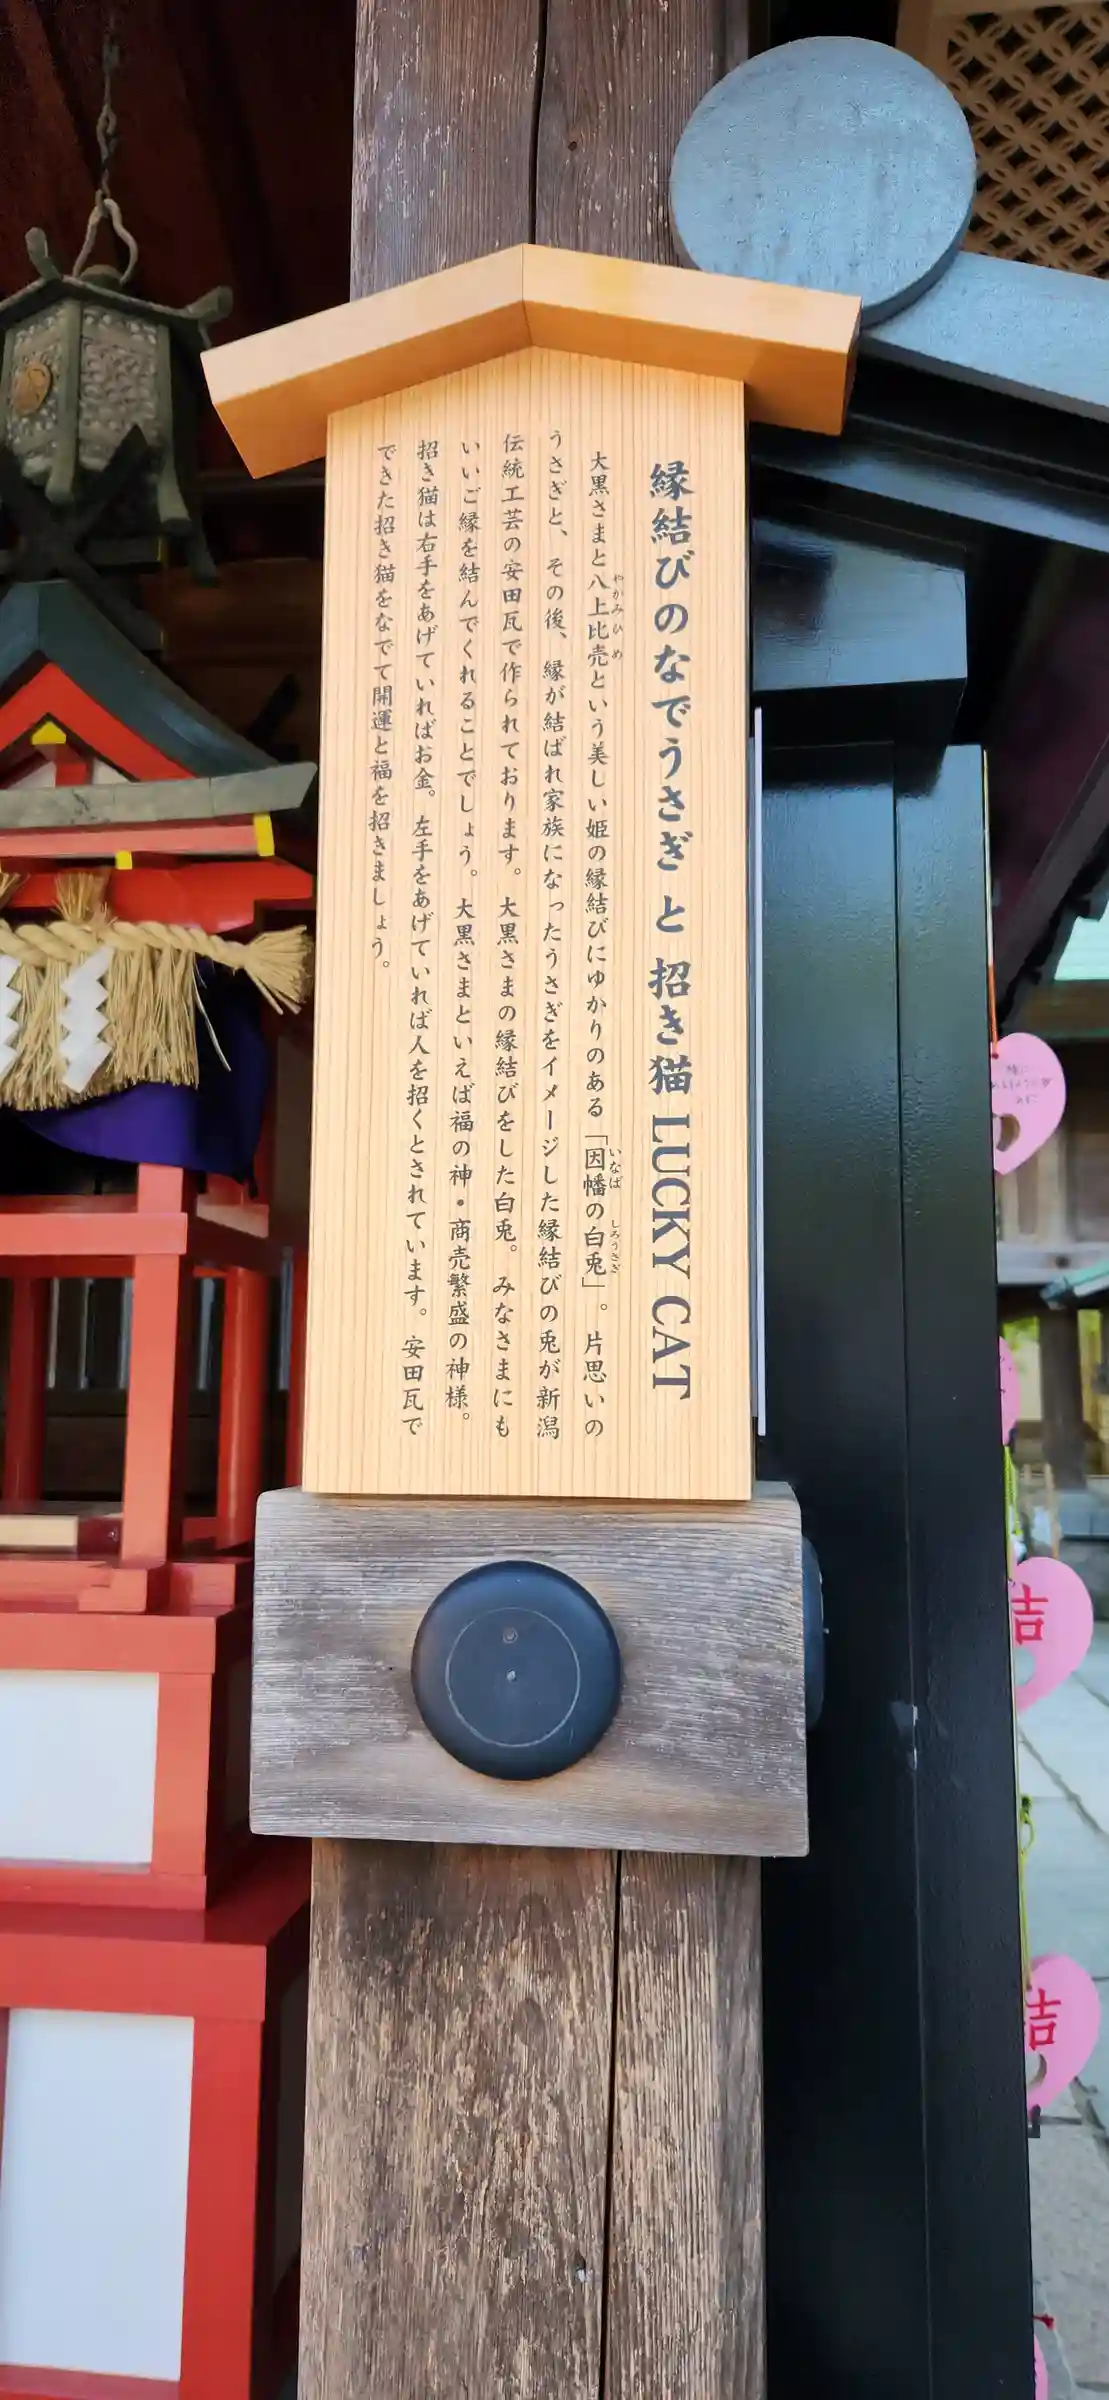 縁結びのなでうさぎ と 招き猫 LUCKY CAT
大黒さまと八上比売という美しい姫の縁結びにゆかりのある「因幡の白兎」。片思いの
やかみひめ
いなば
しろうさぎ
うさぎと、その後、縁が結ばれ家族になったうさぎをイメージした縁結びの兎が新潟
伝統工芸の安田瓦で作られております。大黒さまの縁結びをした白兎。みなさまにも
いいご縁を結んでくれることでしょう。大黒さまといえば福の神・商売繁盛の神様。
招き猫は右手をあげていればお金。左手をあげていれば人を招くとされています。安田瓦で
できた招き猫をなでて開運と福を招きましょう。
結
結